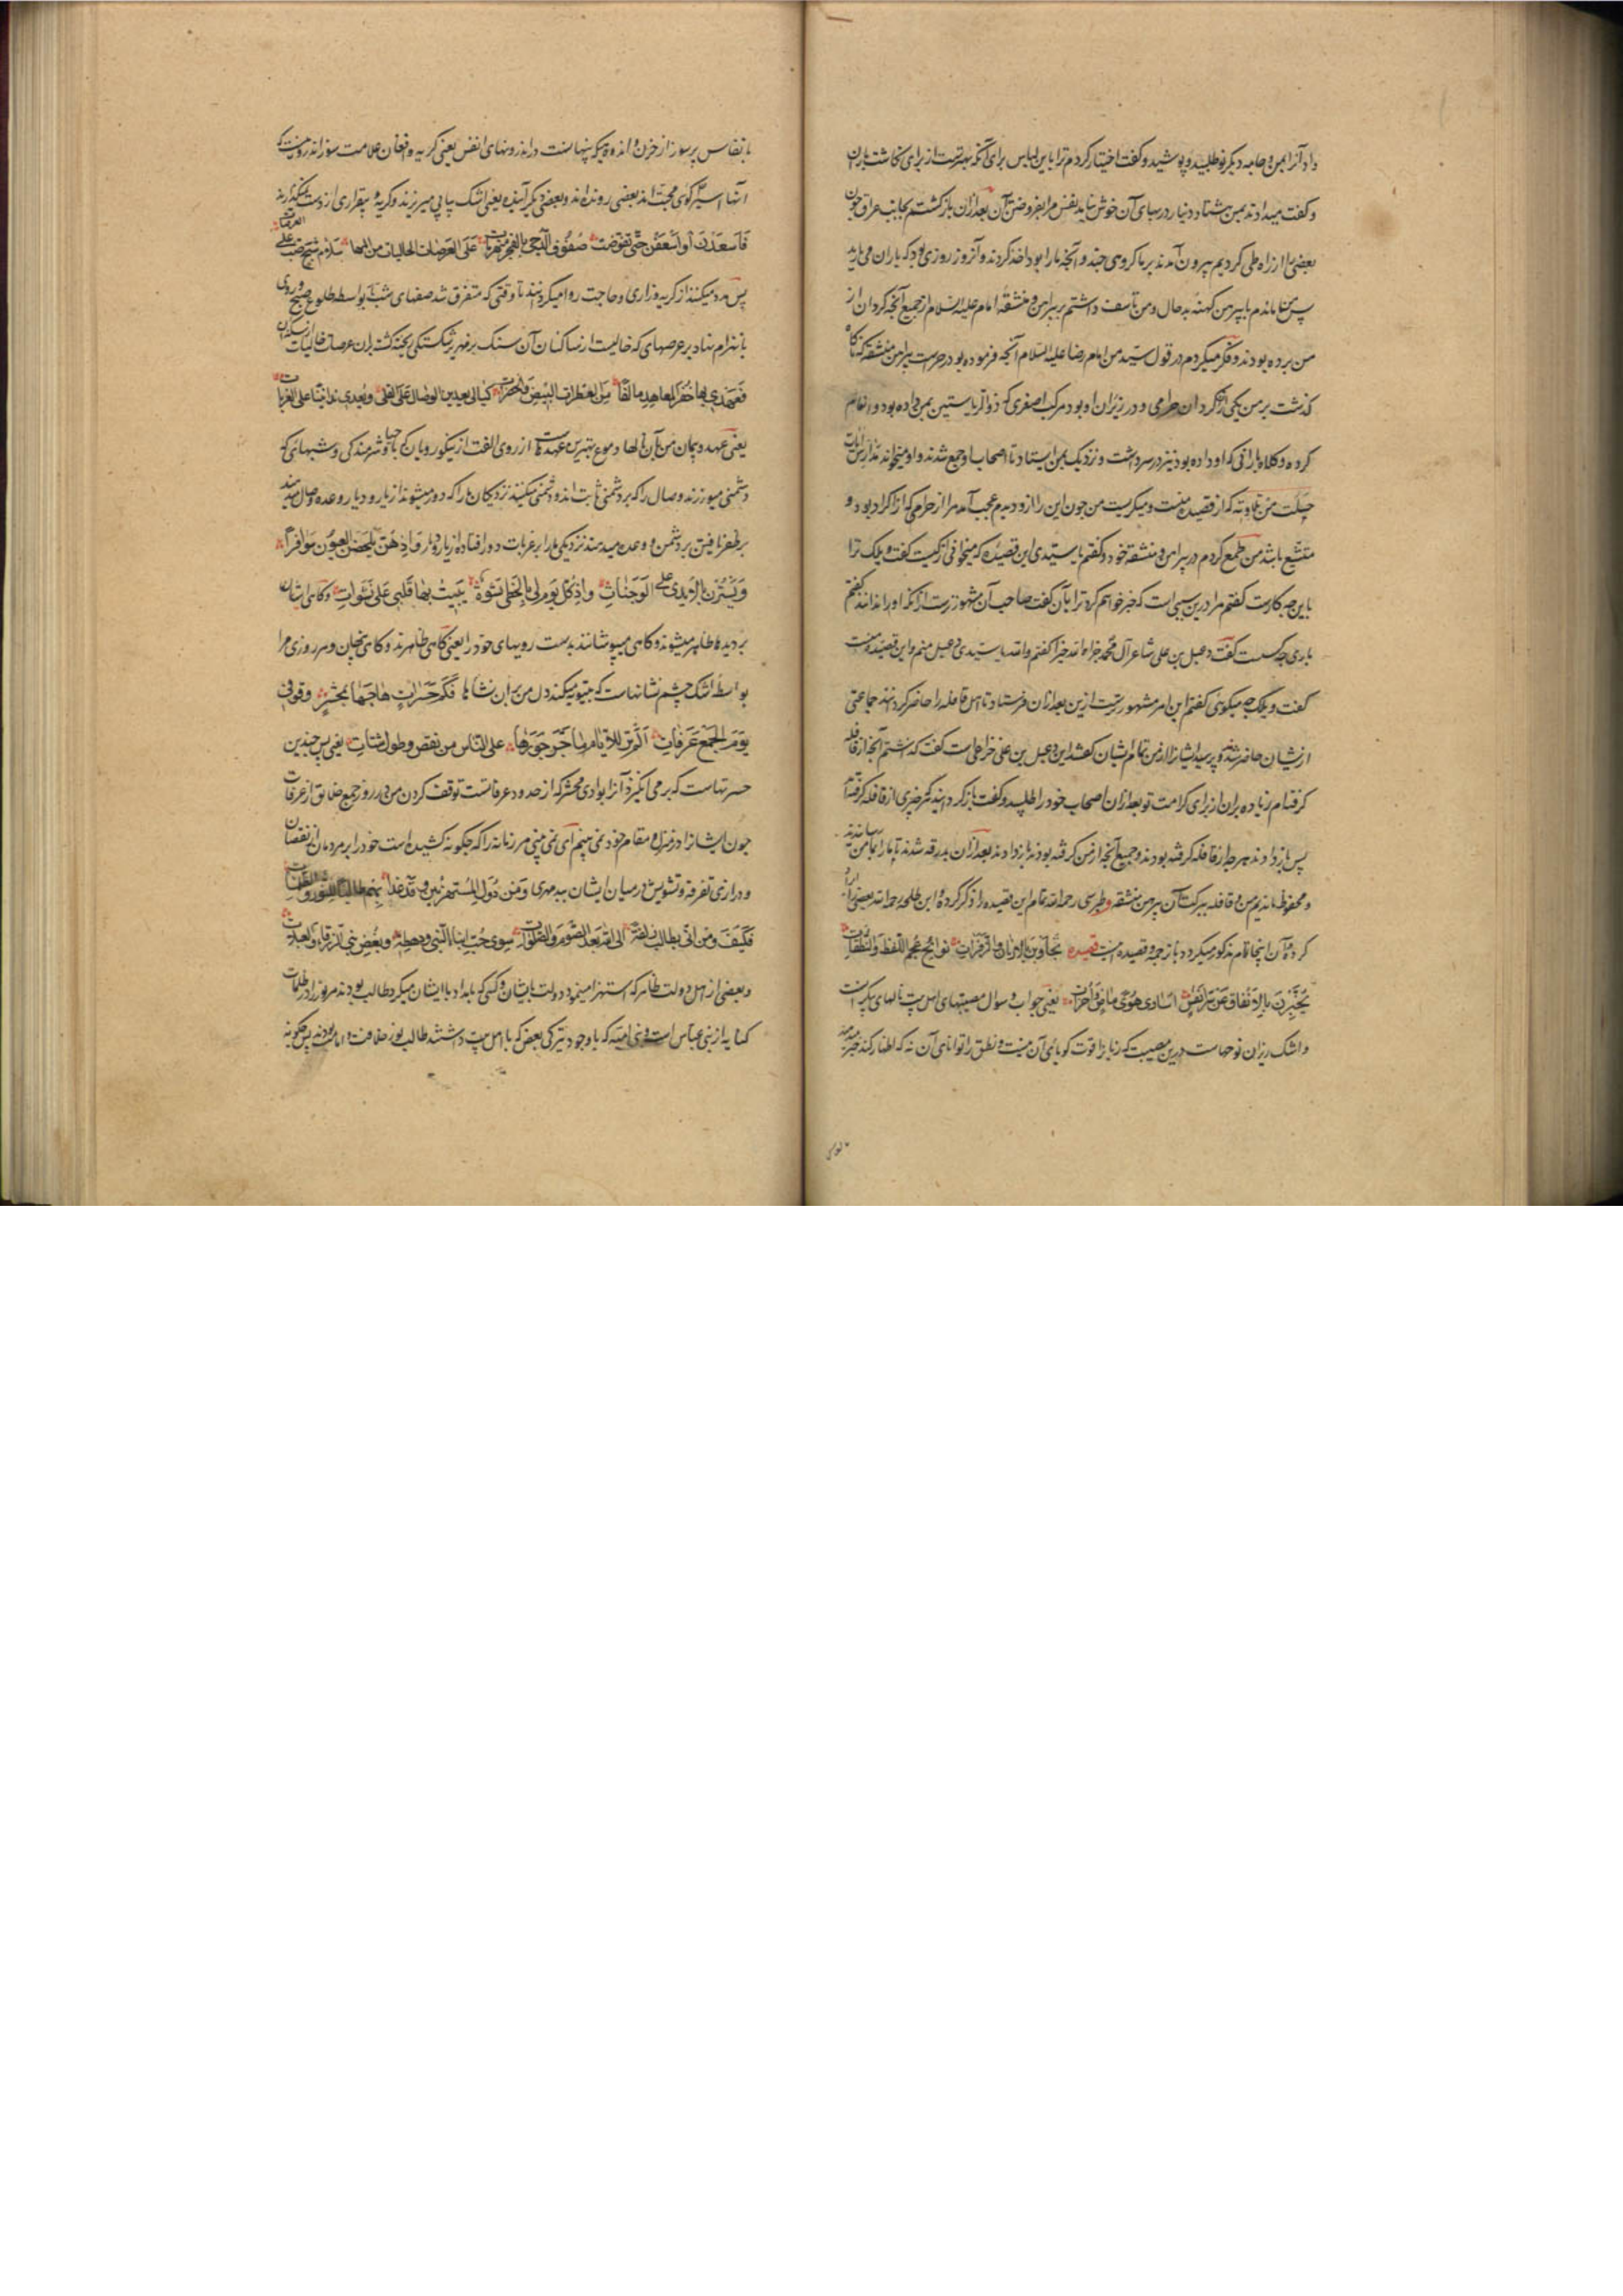 داد آنرا بمن و جامه دیگر نو طلبید و پوشید و گفت اختیار کردم ترا باین لباس برای آنکه بهترست از برای نگاه داشت باران
و گفت میدادند بمن هشتاد دینار در بهای آن خوش نیامد نفس مرا بفروختن آن بعد ازان بازگشتم بجانب عراق چون
بعضی را از راه طی کردیم بیرون آمدند بر ما گروهی چند و آنچه ما را بود اخذ کردند و آنروز روزی بود که باران می بارید
پس من ماندم با پیرهن کهنه بد حال و من تأسف داشتم بر پیراهن و منشفه امام علیه السلام از جمیع آنچه کردان از
من برده بودند و فکر میکردم در قول سید من امام رضا علیه السلام آنچه فرموده بود در حرمت پیراهن و منشفه که ناگاه
گذشت بر من یکی از کردان حرامی و در زیر ران او بود مرکب اصفری که ذو الریاستین بمن داده بود و انعام
کرده و کلاه بارانی که او داده بود نیز در سر داشت و نزدیک بمن ایستاد تا اصحاب او جمع شدند و او میخواند مدارس آیات
خلت من تلاوته که از قصیده منست و میگریست من چون این را ازو دیدم عجب آمد مرا از حرامی که از اکراد بود و
متشیع باشد من طمع کردم در پیراهن و منشفه خود و گفتم یا سیدی این قصیده که میخوانی از کیست گفت ویلک ترا
باین چه کارست گفتم مرا درین سببی است که خبر خواهم کرد ترا بآن گفت صاحب آن مشهورترست از آنکه او را ندانند گفتم
باری چه کسست گفت دعبل بن علی شاعر آل محمد جزاه الله خیرا گفتم والله یا سیدی دعبل منم و این قصیده منست
گفت ویلک چه میگوئی گفتم این امر مشهورترست ازین بعد ازان فرستاد تا اهل قافله را حاضر کردند جماعتی
ازیشان حاضر شدند و پرسید ایشانرا از من تمام ایشان گفتند این دعبل بن علی خزاعی است گفت گذاشتم آنچه از قافله
گرفته ام زیاده بران از برای کرامت تو بعد ازان اصحاب خود را طلبید و گفت باز گردانید هر چیزی از قافله گرفته اید
پس باز دادند هر چه از قافله گرفته بودند و جمیع آنچه از من گرفته بودند باز دادند بعد ازان بدرقه شدند تا ما را بمامن رسانیدند
و محفوظ ماندیم من و قافله ببرکت آن پیرهن و منشفه و طبرسی رحمه الله تمام این قصیده را ذکر کرده و ابن طلحه رحمه الله بعضی را ایراد
کرده و آن اینجا تمام مذکور میگردد با ترجمه و قصیده اینست قصیده تجاوبن بالارنان والزفرات نوائح عجم اللفظ والنطقات
یخبرن بالانفاس عن سر انفس اساری هوی ماض وآخر آت یعنی جواب و سوال مصیبتهای اهل بیت نالهای پیکر است
و اشک ریزان نوحهاست درین مصیبت که زبانرا قوت گویائی آن نیست و نطق را توانائی آن نه که اظهار کند خبر میدهند
بانفاس پر سوز از حزن و اندوهی که پنهانست در اندرونهای انفس یعنی گریه و افغان علامت سوز اندرونیست که
آنها اسیر کوی محبت اند بعضی رونده اند و بعضی دیگر آینده یعنی اشک پیاپی میریزند و گریه و بیقراری از دست نمیگذارند
فاسعدن او اسعفن حتی تقوضت صفوف الدجی بالفجر منهزمات علی العرصات الخالیات من المها سلام شج صب علی العرصات
پس مدد میکنند از گریه و زاری و حاجت روا میگردانند تا وقتی که متفرق شد صفهای شب بواسطه طلوع صبح و روی
بانهزام نهاد بر عرصهای که خالیست از ساکنان آن
فعهدی بها خضر المعاهد مألفا من العطرات البیض والخفرات لیالی یعدین الوصال علی القلی ویعدی تدانینا علی الغربات
یعنی عهد و پیمان من بآن
دشمنی میورزند وصال را که بر دشمنی ثابت اند و دشمنی میکنند نزدیکان ما را که دور میشوند از یار و دیار و وعده وصال میدهند
بر ظفر یافتن بر دشمن و وعده میدهند نزدیکی ما را بر غربات دور افتاده از یار و دیار واذ هن یلحظن العیون سوافرا
ویسترن بالایدی علی الوجنات واذ کل یوم لی بلحظی نشوة یبیت بها قلبی علی نشوات و گاهی ایشان
بر دیدها ظاهر میشوند و گاهی میپوشانند بدست رویهای خود را یعنی گاهی ظاهرند و گاهی پنهان و هر روزی مرا
بواسطه اشک چشم نشانهاست که بیتوته میکند دل من بر آن نشانها فکم حسرات هاجها بمحسر وقوفی
یوم الجمع من عرفات الم تر للایام ما جر جورها علی الناس من نقص وطول شتات یعنی پس چندین
حسرتهاست که بر می انگیزد آنرا بوادی محسر که از حدود عرفاتست توقف کردن من در روز جمع خلایق از عرفات
چون ایشانرا در منزل و مقام خود نمی بینم آیا نمی بینی مر زمانه را که چگونه کشیده است خود را بر مردمان از نقصان
و درازی تفرقه و تشویش در میان ایشان بیدمهری ومن دول المستهزئین ومن غدا بهم طالبا للنور فی الظلمات
فکیف ومن انی بطالب زلفة الی الله بعد الصوم والصلوات سوی حب ابناء النبی ورهطه وبغض بنی الزرقاء والعبلات
و بعضی از اهل دولت ظاهر که استهزا مینمود دولت بایشان و کسی که بامداد با ایشان میکرد طالب بودند مر نور را در ظلمات
کنایه از بنی عباس است و بنی امیه که با وجود تیرگی بغض که با اهل بیت داشتند طالب نور خلافت و امامت بودند پس چگونه